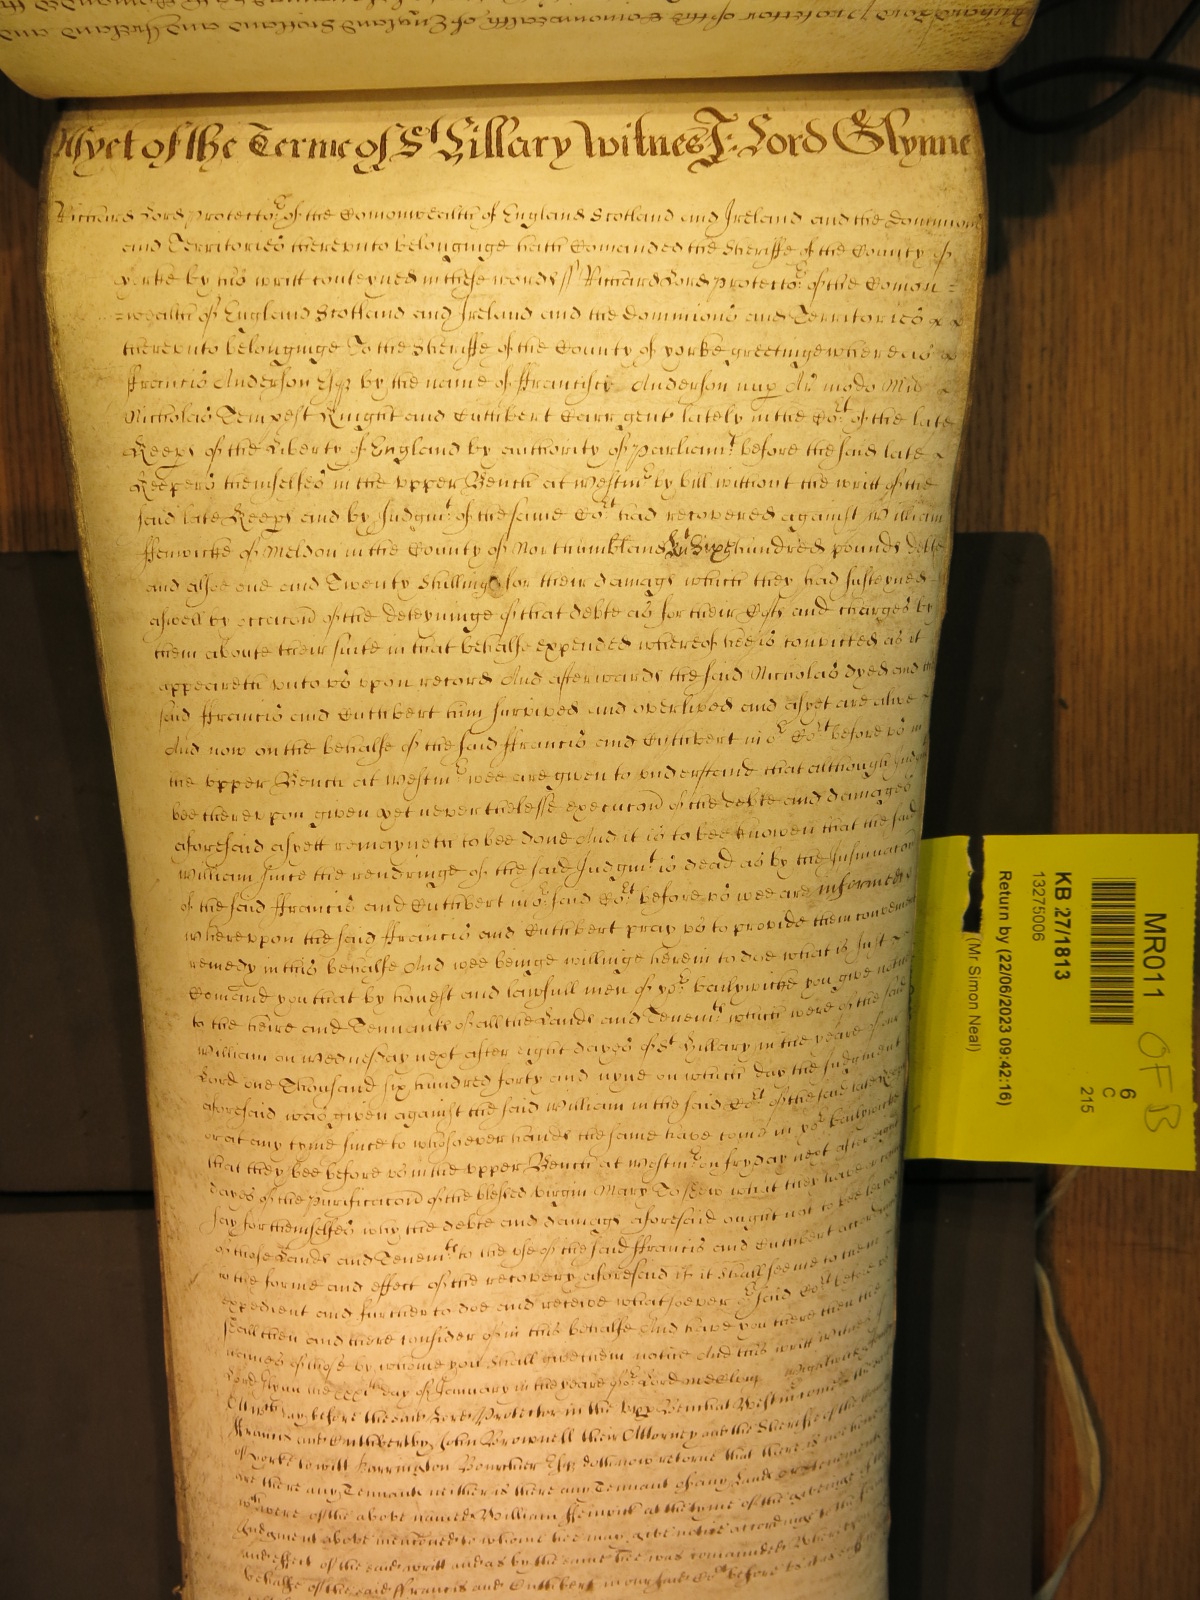 Richard Lord Protector of the Comonwealth of England Scotland and Ireland and
Asyet of the Terme of St Hillary Witnes J: Lord Glynne
Richard Lord Protector of the Comonwealth of England Scotland and Ireland and the Dominions
and Territories therevnto belonginge hath Comanded the Sheriffe of the County of
yorke by his writt conteyned in these words ss Richard Lord Protector of the Comon =
=wealth of England Scotland and Ireland and the Dominions and Territories
therevnto belonginge To the Sheriffe of the County of yorke greetinge whereas
ffrancis Anderson Esqr by the name of ffrancisci Anderson nup Ar modo Mil
Nicholas Tempest Knight and Cuthbert Carr gent lately in the Cort of the late
Keeps of the Liberty of England by authority of Parliamt before the said late
Keepers themselves in the vpper Bench at Westmr by bill without the writt of the
said late Keeps and by Judgmt of the same Cort had recovered against William
ffenwicke of Meldon in the County of Northumbland Sixe hundred pounds debte
and alsoe one and Twenty shillings for their damags which they had susteyned
aswell by occacon of the deteyninge of that debte as for their Costs and charges by
them aboute their suite in that behalfe expended whereof hee is convicted as it
appeareth vnto vs vpon record And afterwards the said Nicholas dyed and the
said ffrancis and Cuthbert him survived and overlived and asyet are alive
And now on the behalfe of the said ffrancis and Cuthbert in or Cort before vs in
the vpper Bench at Westmr wee are given to vnderstand that although Judgmt
bee therevpon given yet neverthelesse execucon of the debte and damages
aforesaid asyett remayneth to bee done And it is to bee knowen that the said
William since the rendringe of the said Judgmt is dead as by the Insinuacon
of the said ffrancis and Cuthbert in or said Cort before vs wee are informed
wherevpon the said ffrancis and Cuthbert pray vs to provide them convenient
remedy in this behalfe And wee beinge willinge herein to doe what is Just
Comand you that by honest and lawfull men of yor bailywicke you give notice
to the heire and Tennants of all the Lands and Tenemts which were of the said
William on Wednesday next after eight dayes of St Hillary in the yeare of our
Lord one Thousand six hundred forty and nyne on which day the Judgment
aforesaid was given against the said William in the said Cort of the said late Keeps
or at any tyme since to whosoever hands the same have come in yor bailywicke
that they bee before vs in the vpper Bench at Westmr on fryday next after eight
dayes of the purificacon of the blessed virgin Mary To shew what they have or
say for themselves why the debte and damags aforesaid ought not to bee levied
of those Lands and Tenemts to the vse of the said ffrancis and Cuthbert
to the forme and effect of the recovery aforesaid if it shall seeme to them
expedient and further to doe and receive whatsoever or said Cort before vs
shall then and there consider of in this behalfe And have you there then the
names of those by whome you shall give them notice And this writt Witnes J
Lord Glynn the day of January in the yeare of or Lord
Att wch day before the said Lord Protector in the vpp Bench at Westmr come the
ffrancis and Cuthbert by John Brownell their Attorney and the Sheriffe of the
of yorke to witt Barrington Bourchier Esqr doth now retorne that there is not
are there any Tennants neither is there any Tennant of any Lands or Tenements
wch were of the above named William ffenwick at the tyme of the giveinge of the
Judgment above menconed to whome hee may give notice accordinge to the
and effect of the said writt and as by the same hee was comanded
behalfe of the said ffrancis and Cuthbert in our said Cort before vs
MR011
KB 27/1813
13275006
Return by (22/06/2023 09:42:16)
(Mr Simon Neal)
6
C
215
OFB